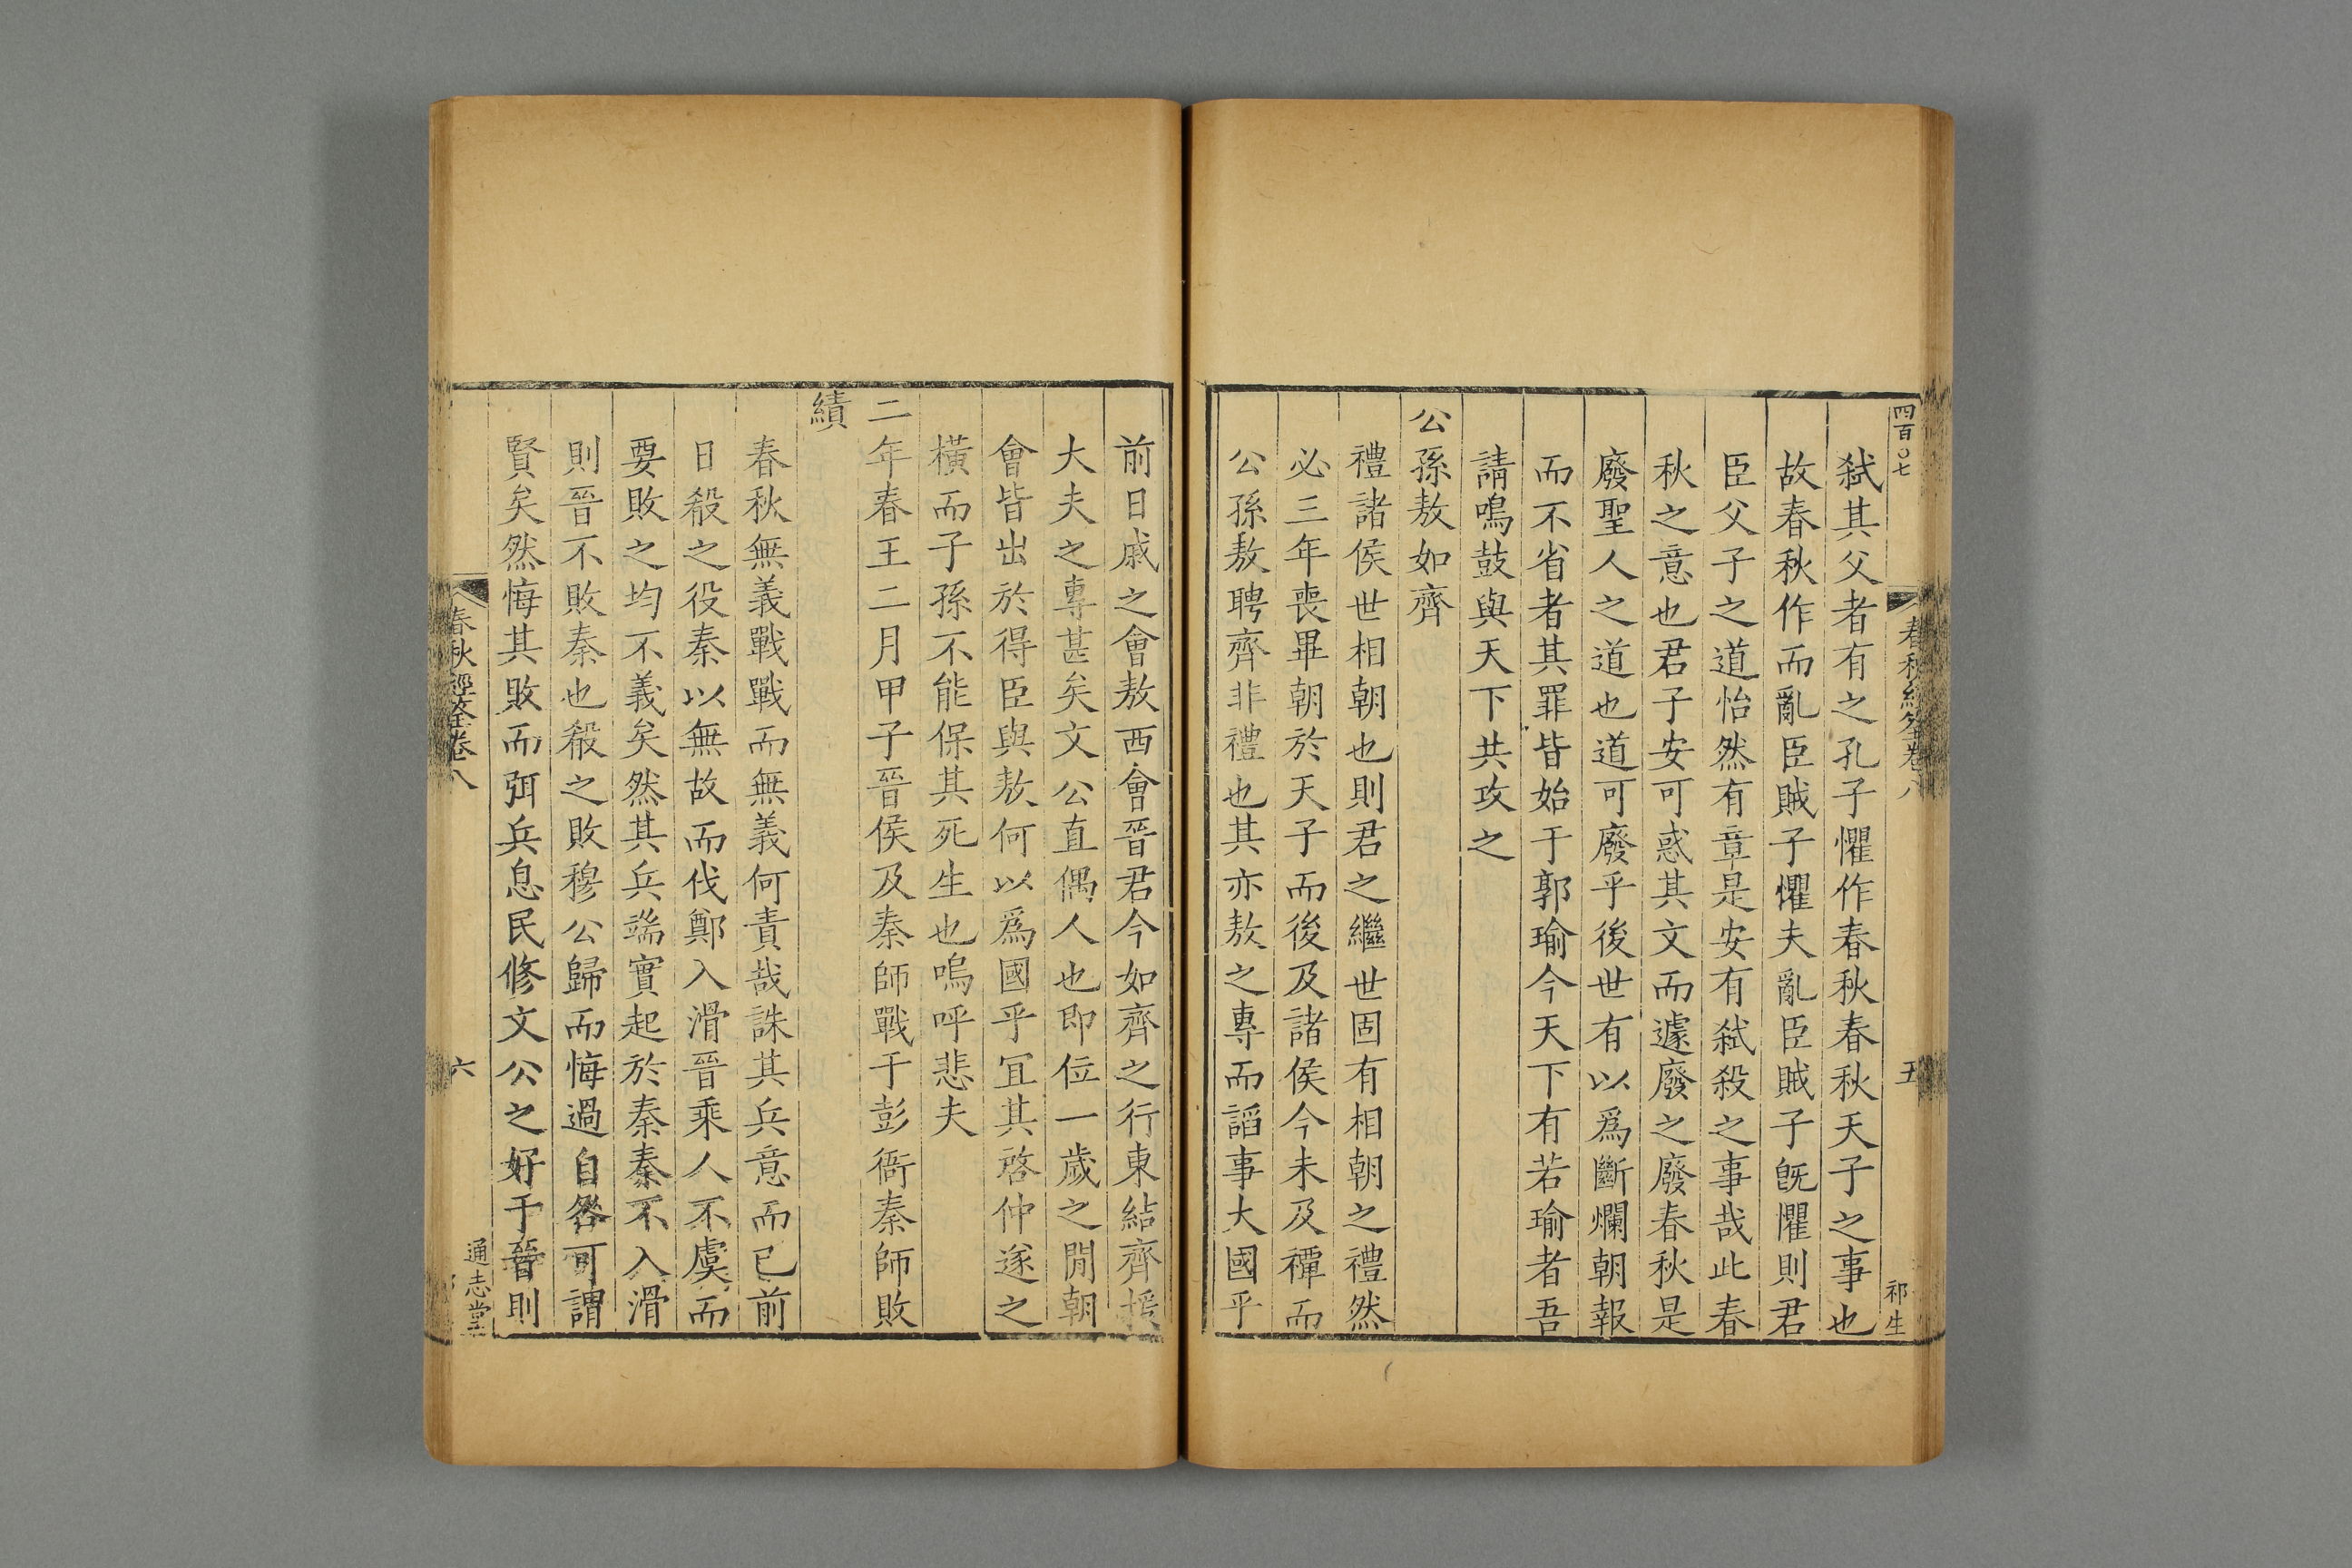 四百〇七
春秋經筌卷八
五
祁生
弑其父者有之孔子懼作春秋春秋天子之事也
故春秋作而亂臣賊子懼夫亂臣賊子旣懼則君
臣父子之道怡然有章是安有弑殺之事哉此春
秋之意也君子安可惑其文而遽廢之廢春秋是
廢聖人之道也道可廢乎後世有以爲斷爛朝報
而不省者其罪皆始于郭瑜今天下有若瑜者吾
請鳴鼓與天下共攻之
公孫敖如齊
禮諸侯世相朝也則君之繼世固有相朝之禮然
必三年喪畢朝於天子而後及諸侯今未及禫而
公孫敖聘齊非禮也其亦敖之專而謟事大國乎
前日戚之會敖西會晉君今如齊之行東結齊援
大夫之專甚矣文公直偶人也即位一歲之閒朝
會皆出於得臣與敖何以爲國乎冝其啓仲遂之
橫而子孫不能保其死生也嗚呼悲夫
二年春王二月甲子晉侯及秦師戰于彭衙秦師敗
績
春秋無義戰戰而無義何責哉誅其兵意而已前
日殽之役秦以無故而伐鄭入滑晉乘人不虞而
要敗之均不義矣然其兵端實起於秦秦不入滑
則晉不敗秦也殽之敗穆公歸而悔過自咎可謂
賢矣然悔其敗而弭兵息民修文公之好于晉則
春秋經筌卷八
六
通志堂